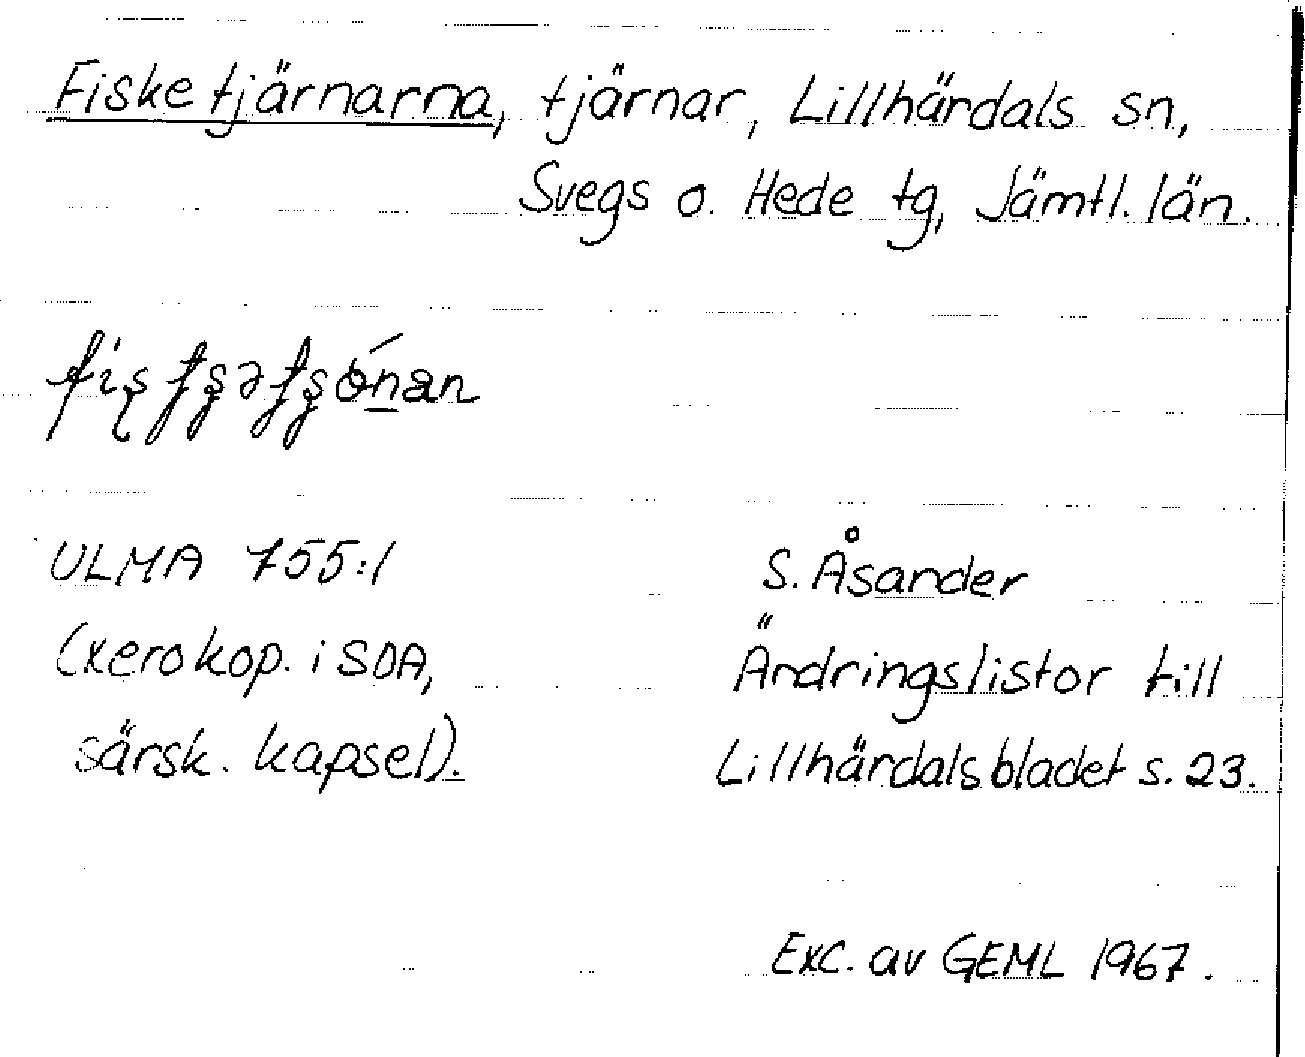 Fisketjärnarna, tjärnar, Lillhärdals sn,
Svegs o. Hede tg, Jämtl. län.
ULMA 755:1
(xerokop. i SOA,
särsk. kapsel).
S. Åsander
Ändringslistor till
Lillhärdalsbladet s. 23.
Exc. av GEML 1967.